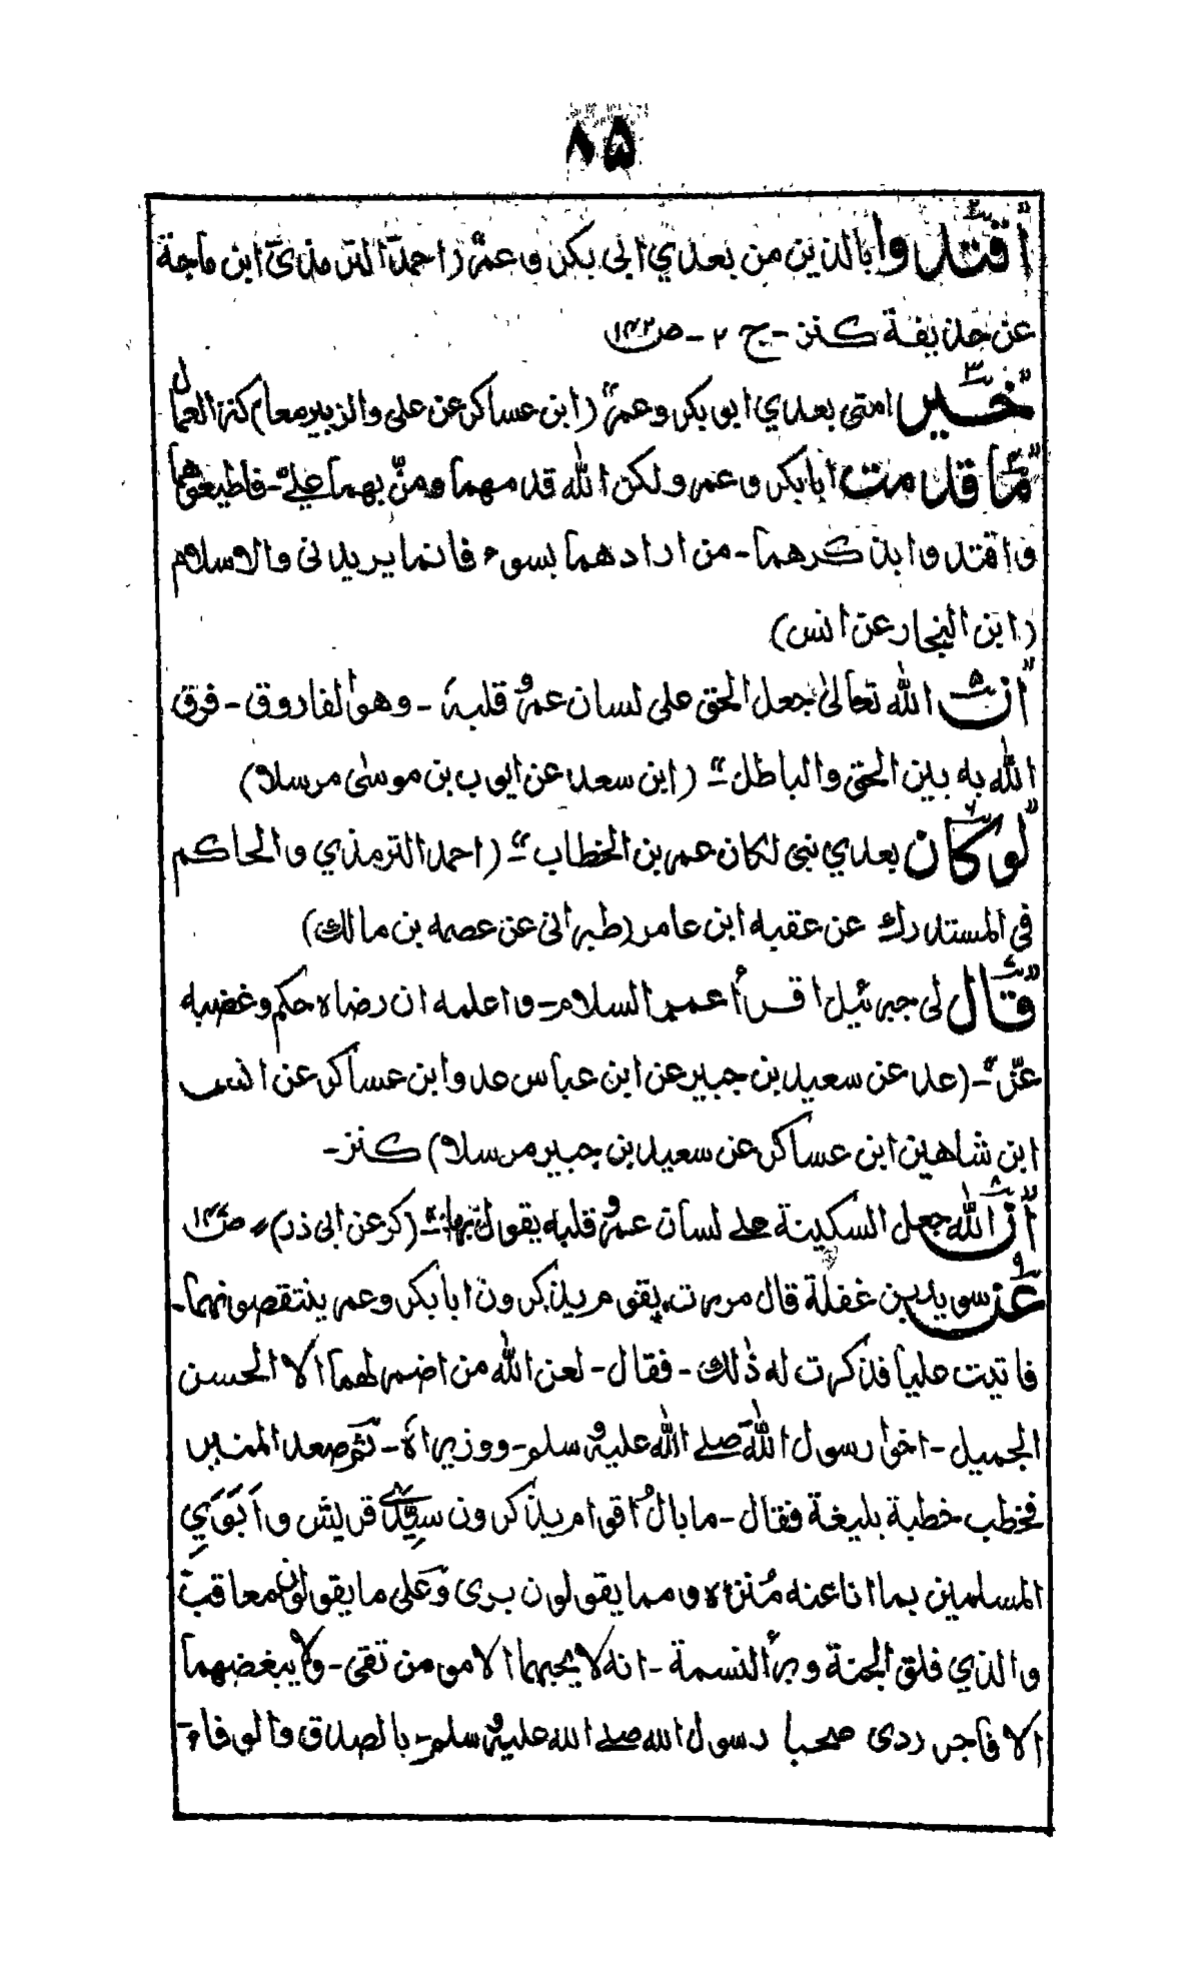 ۸۵
"اقتدوا بالذین من بعدي ابی بکر و عمرؓ (احمد الترمذی ابن ماجة
عن حذیفة کنز - ج ۲ - ص۱۴۲
"خیر امتی بعدي ابو بکر و عمرؓ (ابن عساکر عن علی والزبیر معا) کنز العمال
"ما قدمت ابا بکر و عمر ولکن الله قدمهما ومنّ بهما علیّ - فاطیعوهما
واقتدوا بذکرهما - من ارادهما بسوء فانما یریدنی والاسلام
(ابن النجار عن انس)
"ان الله تعالیٰ جعل الحق علی لسان عمر و قلبه - وهو الفاروق - فرق
الله به بین الحق والباطل" - (ابن سعد عن ایوب بن موسیٰ مرسلا)
"لو کان بعدي نبی لکان عمر بن الخطاب" - (احمد الترمذي والحاکم
فی المستدرك عن عقبه ابن عامر (طبرانی عن عصمه بن مالك)
"قال لی جبرئیل اقرأ عمر السلام - واعلمه ان رضاه حکم وغضبه
عزّ" - (عد عن سعید بن جبیر عن ابن عباس عد وابن عساکر عن انس
ابن شاهین ابن عساکر عن سعید بن جبیر مرسلا) کنز -
"ان الله جعل السکینة علی لسان عمر و قلبه یقول بها" - (کر عن ابی ذر) ص۱۴۲
عن سوید بن غفلة قال مررت بقوم یذکرون ابا بکر و عمر ینتقصونهما -
فاتیت علیا فذکرت له ذٰلك - فقال - لعن الله من اضمر لهما الا الحسن
الجمیل - اخوا رسول الله صلے الله علیه وسلم - ووزیراه - ثم صعد المنبر
فخطب خطبة بلیغة فقال - ما بالُ اقوام یذکرون سیّدَی قریش وابَوَيِ
المسلمین بما انا عنه مُتنزه ومما یقولون بری وَعَلی ما یقولون معاقب
والذي فلق الجنة وبرأ النسمة - انه لا یحبهما الا مومن تقی - ولا یبغضهما
الا فاجر ردی صحبا رسول الله صلے الله علیه وسلم - بالصدق والوفاء -